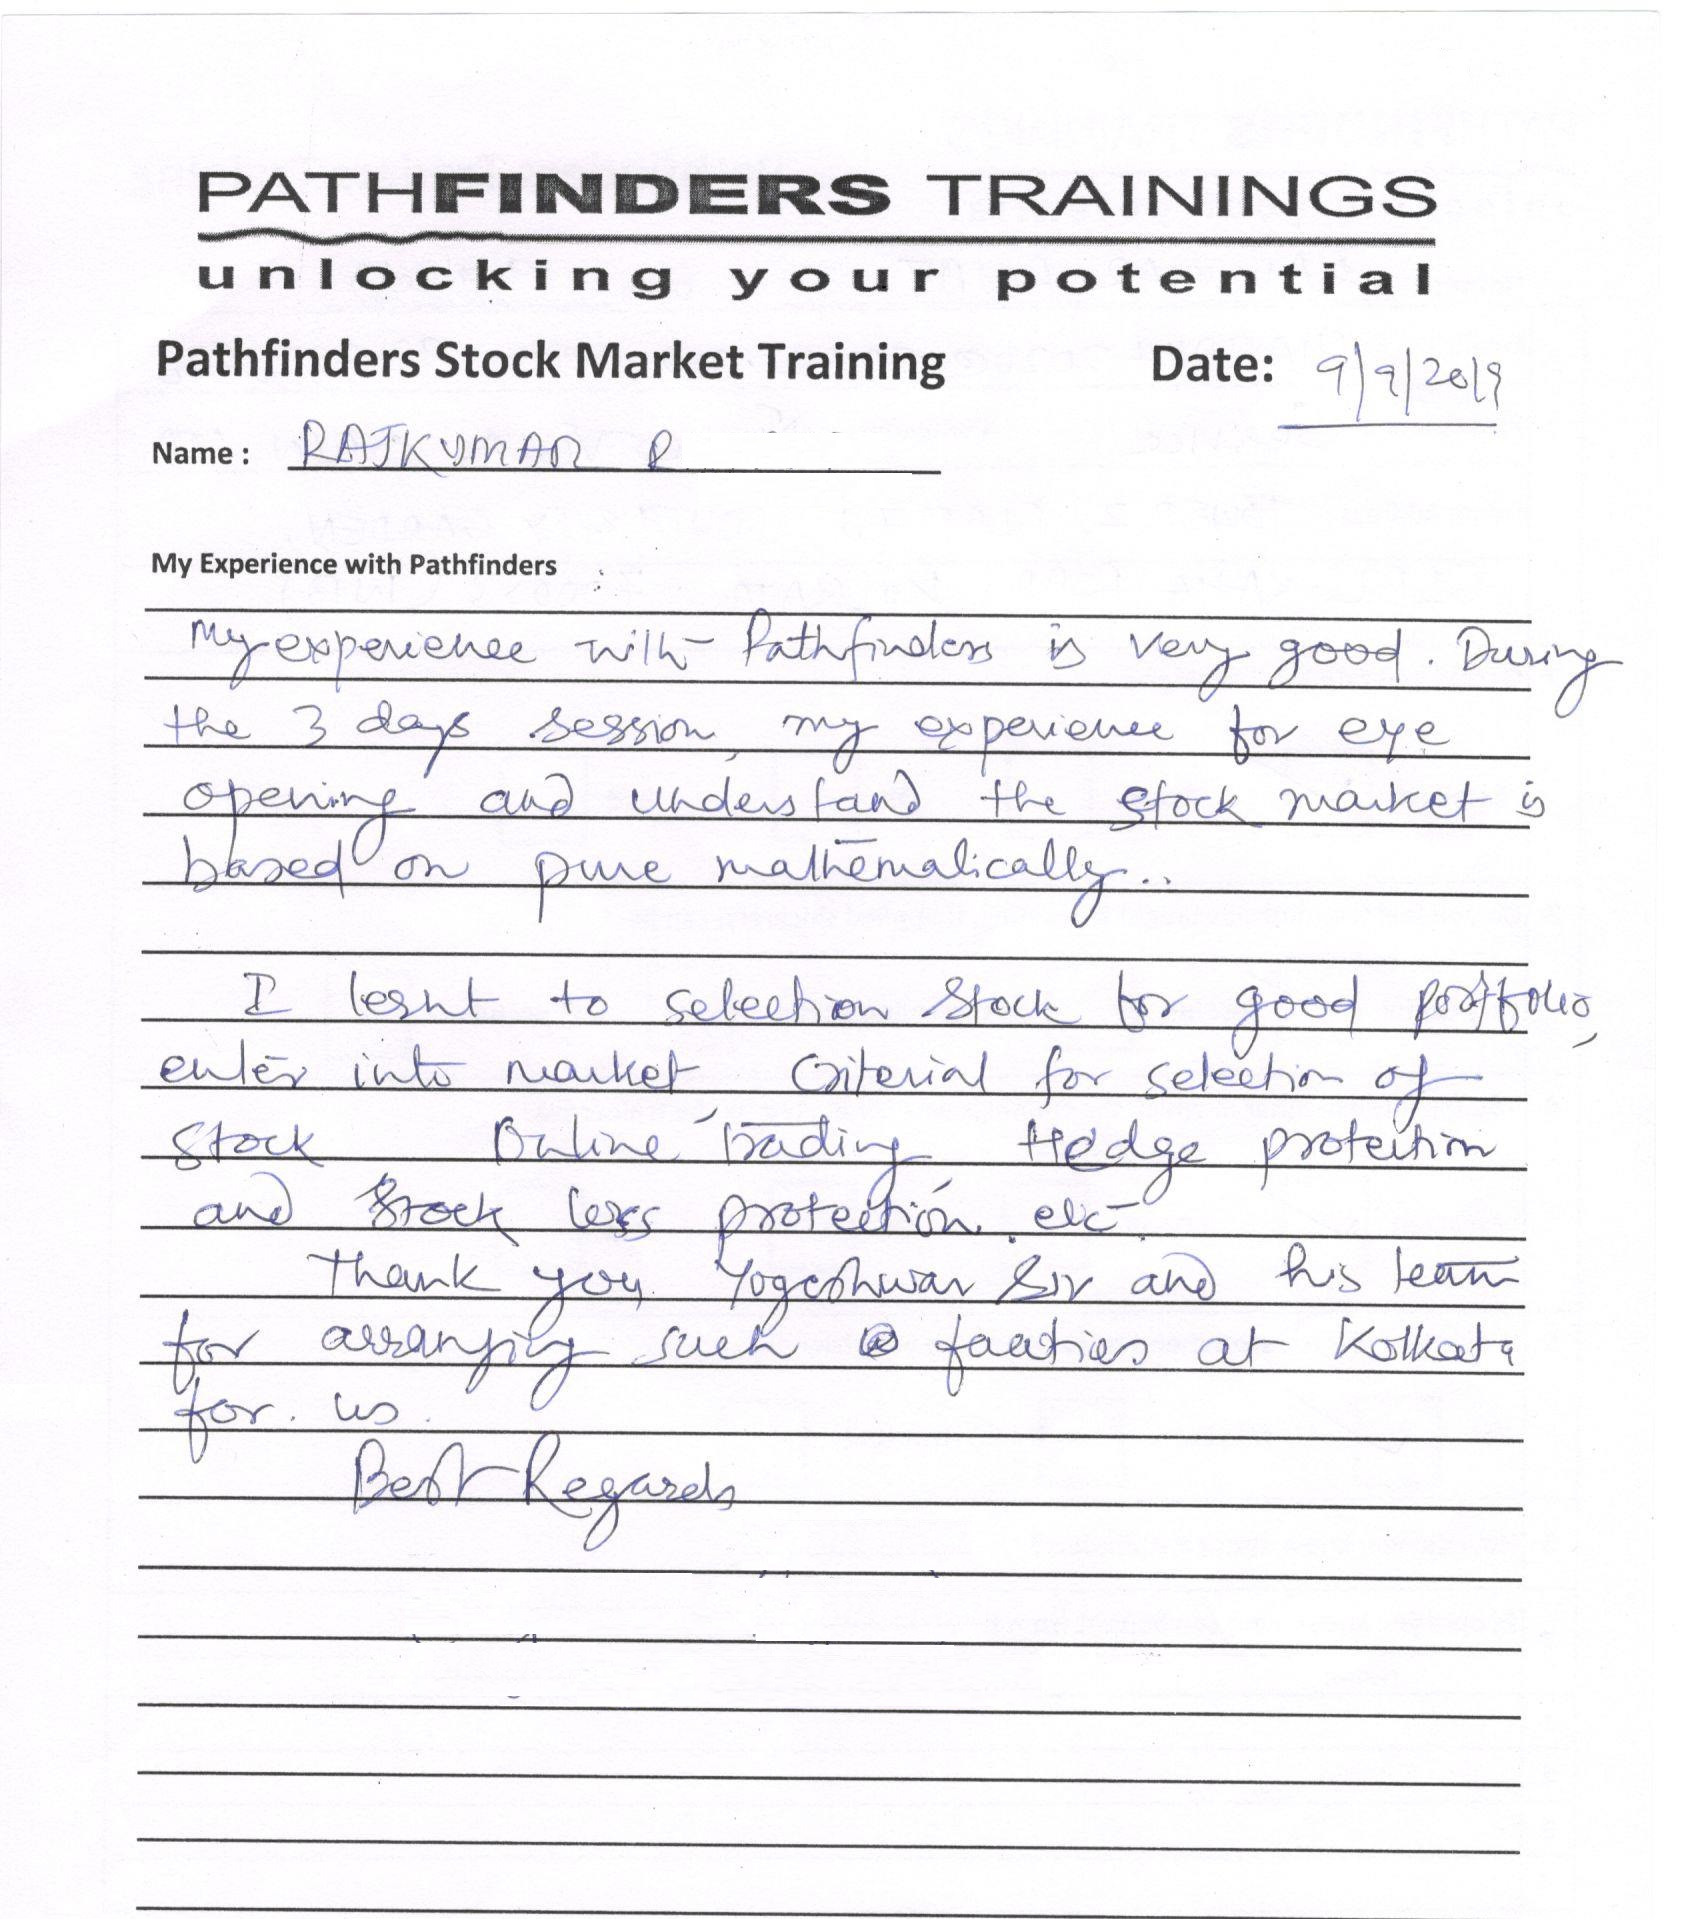 PATHFINDERS TRAININGS
unlocking your potential
Pathfinders Stock Market Training Date: 9/9/2019
Name : RAJKUMAR R
My Experience with Pathfinders
My experience with Pathfinders is very good. During
the 3 days session, my experience for eye
opening and understand the stock market is
based on pure mathematically..
I lesnt to selection stock for good portfolio,
enter into market criterial for selection of
stock Online Trading, Hedge protection
and Stock less protection. etc
Thank you, Yogeshwar Sir and his team
for arranging such at Kolkata
for. us.
Best Regards